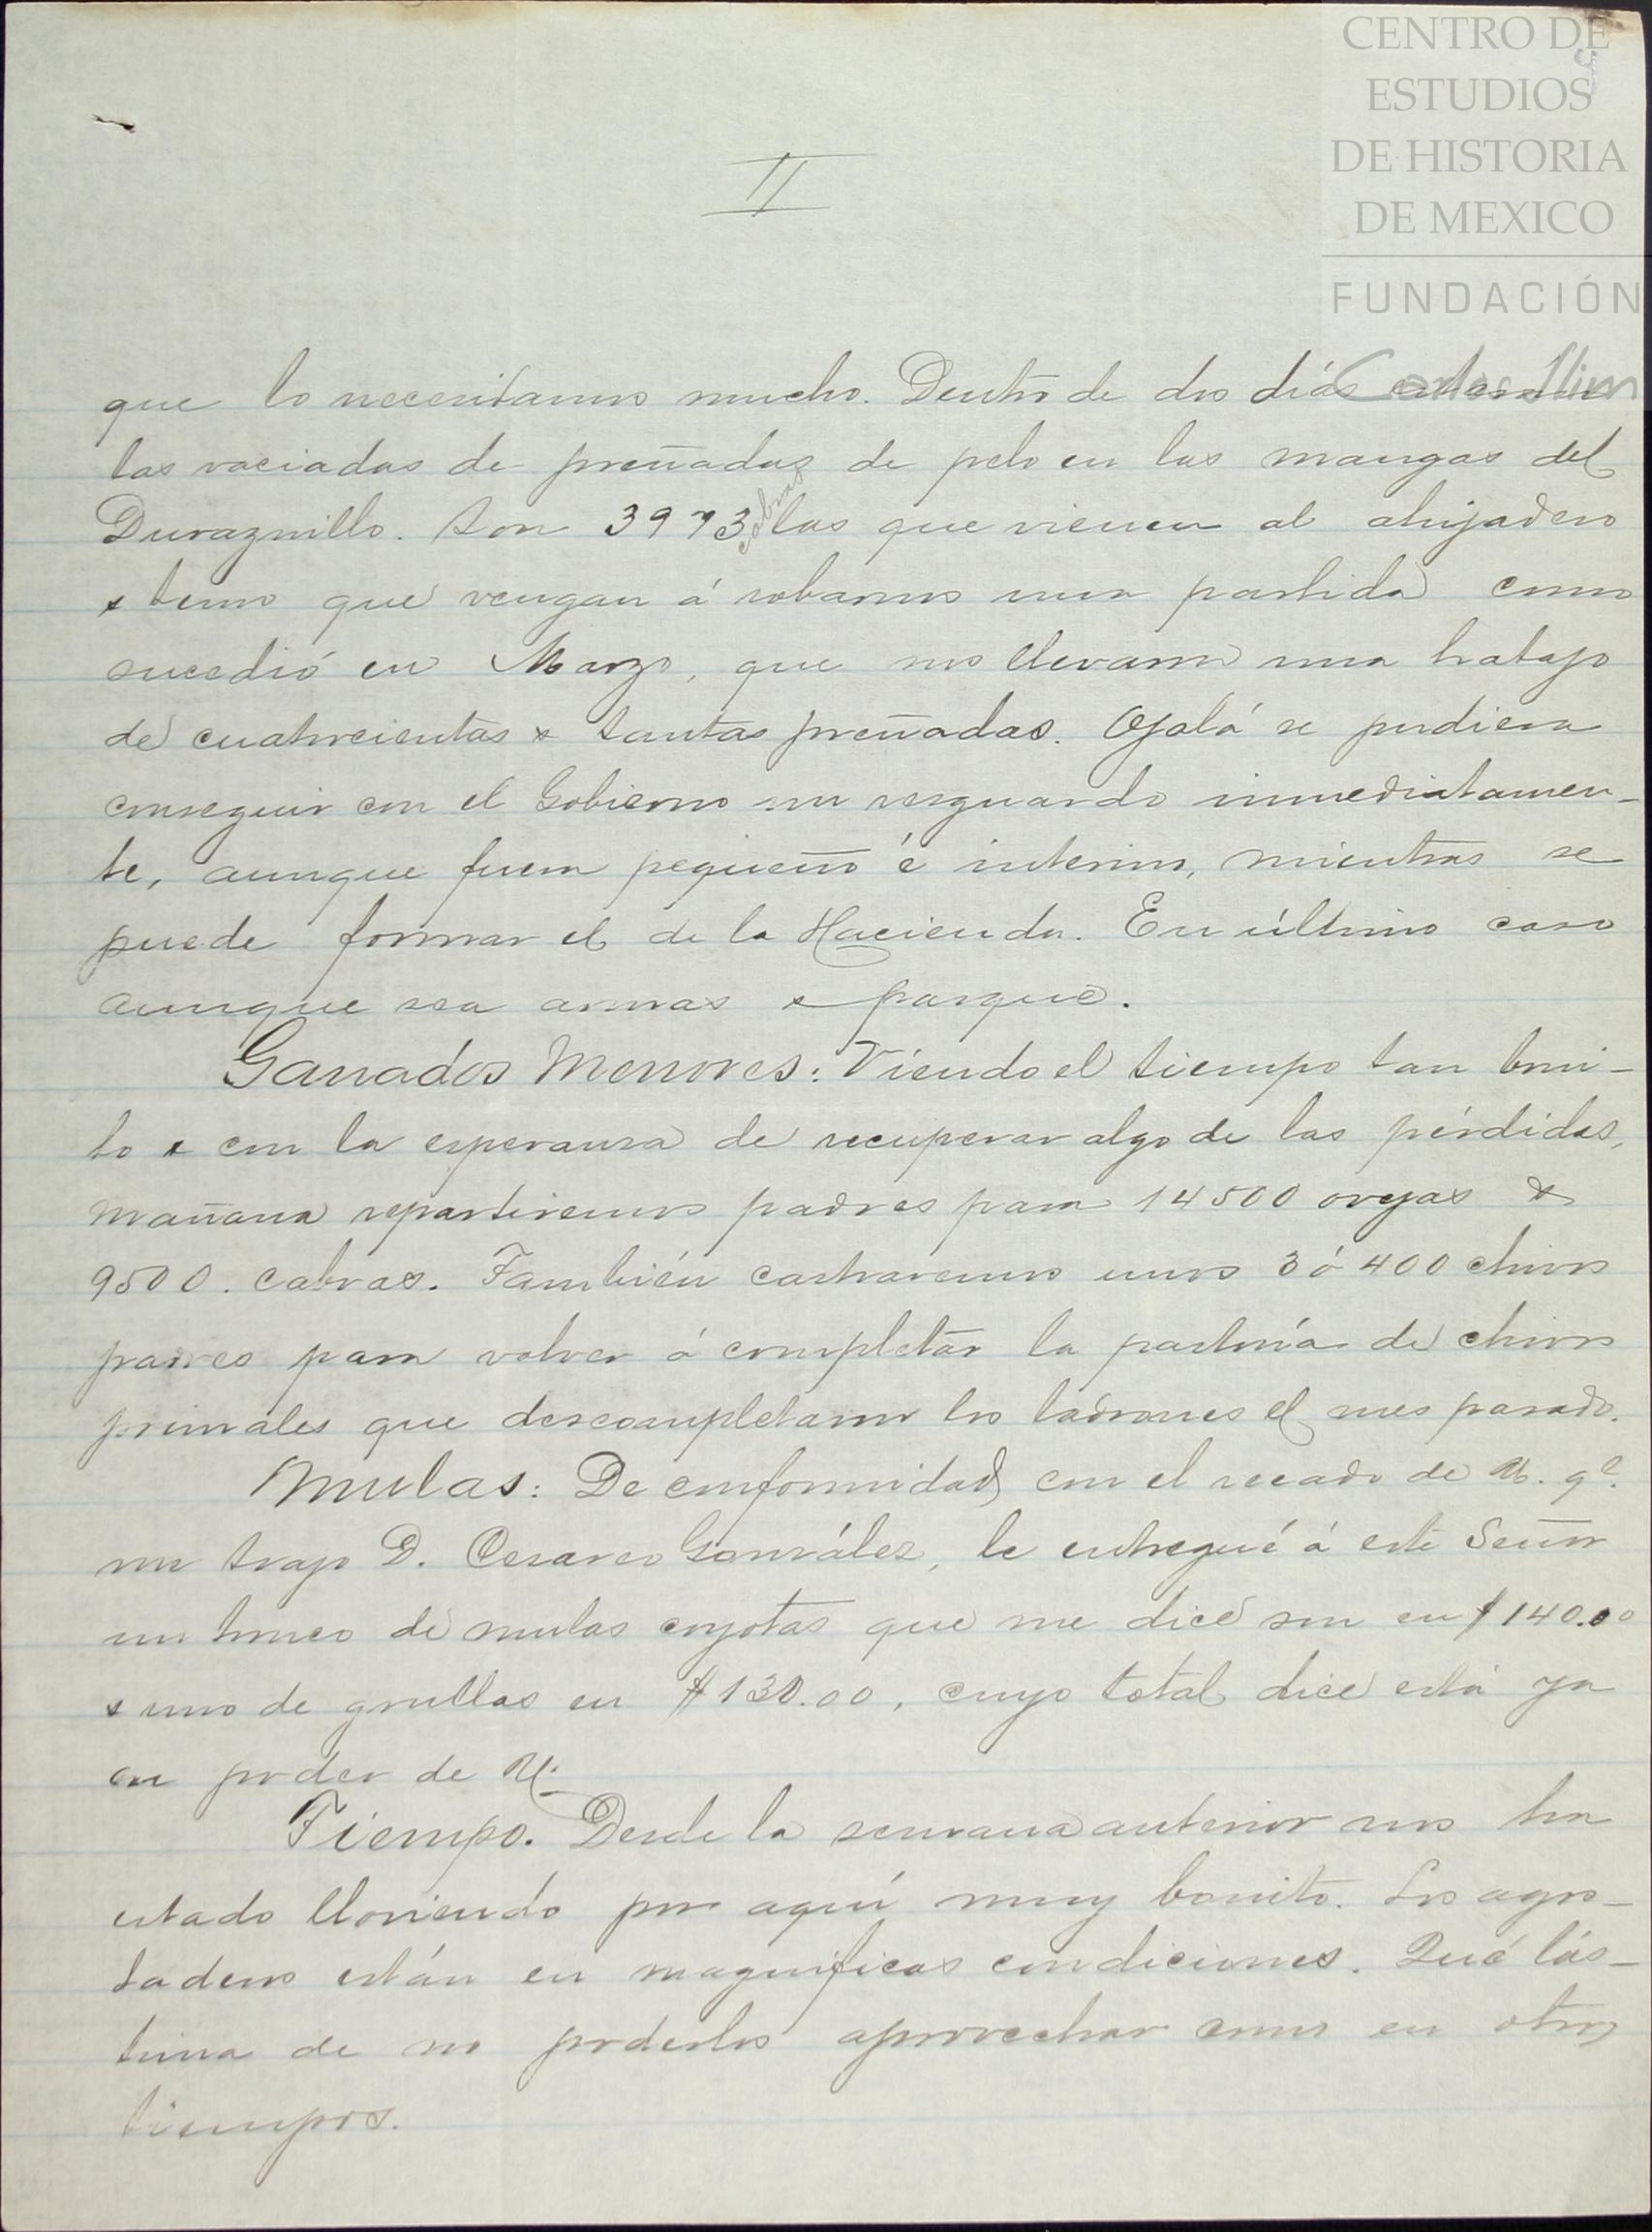 CENTRO DE
ESTUDIOS
DE HISTORIA
DE MEXICO
FUNDACIÓN
Carlos Slim
II
que lo necesitamos mucho. Dentro de dos días estarán
las vaciadas de preñadas de pelo en las mangas del
Duraznillo. Son 3973 cabras las que vienen al ahijadero
& temo que vengan á robarnos una partida como
sucedió en Marzo, que nos llevaron una hatajo
de cuatrocientas & tantas preñadas. Ojalá se pudiera
conseguir con el Gobierno un resguardo inmediatamen-
te, aunque fuera pequeño é interino, mientras se
puede formar el de la Hacienda. En último caso
aunque sea armas & parque.
Ganados Menores: Viendo el tiempo tan boni-
to & con la esperanza de recuperar algo de las pérdidas,
mañana repartiremos padres para 14500 ovejas &
9500. cabras. También castraremos unos 3 ó 400 chivos
padres para volver á completar la pastoría de chivos
primales que descompletaron los ladrones el mes pasado.
Mulas: De conformidad con el recado de U. qe.
me trajo D. Cesareo González, le entregué á este Señor
un tronco de mulas coyotas que me dice son en $140.00
& uno de grullas en $130.00, cuyo total dice está ya
en poder de U.
Tiempo. Desde la semana anterior nos ha
estado lloviendo por aquí muy bonito. Los agos-
taderos están en magníficas condiciones. Qué lás-
tima de no poderlos aprovechar como en otros
tiempos.